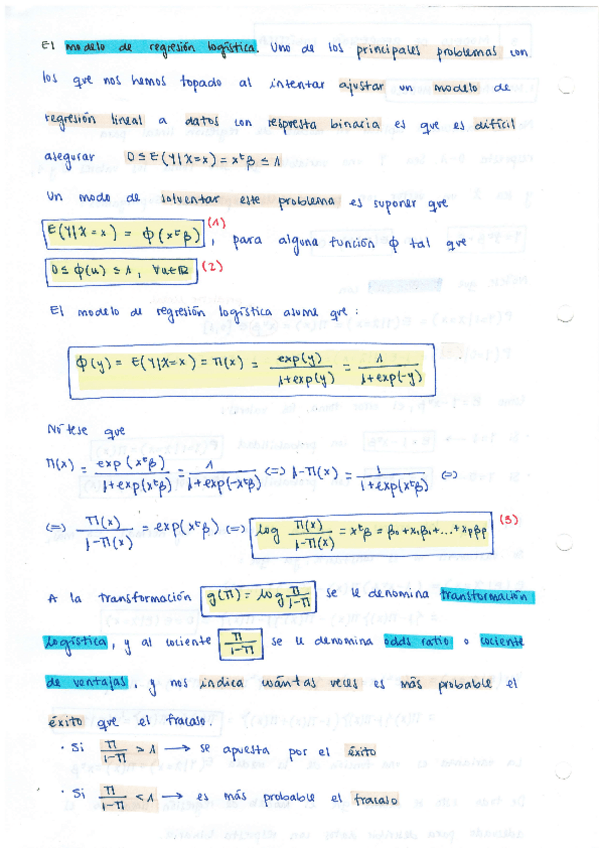 El modelo de regresión logística. Uno de los principales problemas con
los que nos hemos topado al intentar ajustar un modelo de
regresión lineal a datos con respuesta binaria es que es difícil
asegurar 0 ≤ E(Y|X=x) = xᵗβ ≤ 1
Un modo de solventar este problema es suponer que
E(Y|X=x) = Φ(xᵗβ) (1), para alguna función Φ tal que
0 ≤ Φ(u) ≤ 1, ∀u∈ℝ (2)
El modelo de regresión logística asume que:
Φ(y) = E(Y|X=x) = Π(x) = exp(y)/(1+exp(y)) = 1/(1+exp(-y))
Nótese que
Π(x) = exp(xᵗβ)/(1+exp(xᵗβ)) = 1/(1+exp(-xᵗβ)) <=> 1-Π(x) = 1/(1+exp(xᵗβ)) <=>
<=> Π(x)/(1-Π(x)) = exp(xᵗβ) <=> log Π(x)/(1-Π(x)) = xᵗβ = β₀+x₁β₁+...+xpβp (3)
A la transformación g(Π) = log Π/(1-Π) se le denomina transformación
logística, y al cociente Π/(1-Π) se le denomina odds ratio o cociente
de ventajas, y nos indica cuántas veces es más probable el
éxito que el fracaso.
· Si Π/(1-Π) > 1 → se apuesta por el éxito
· Si Π/(1-Π) < 1 → es más probable el fracaso